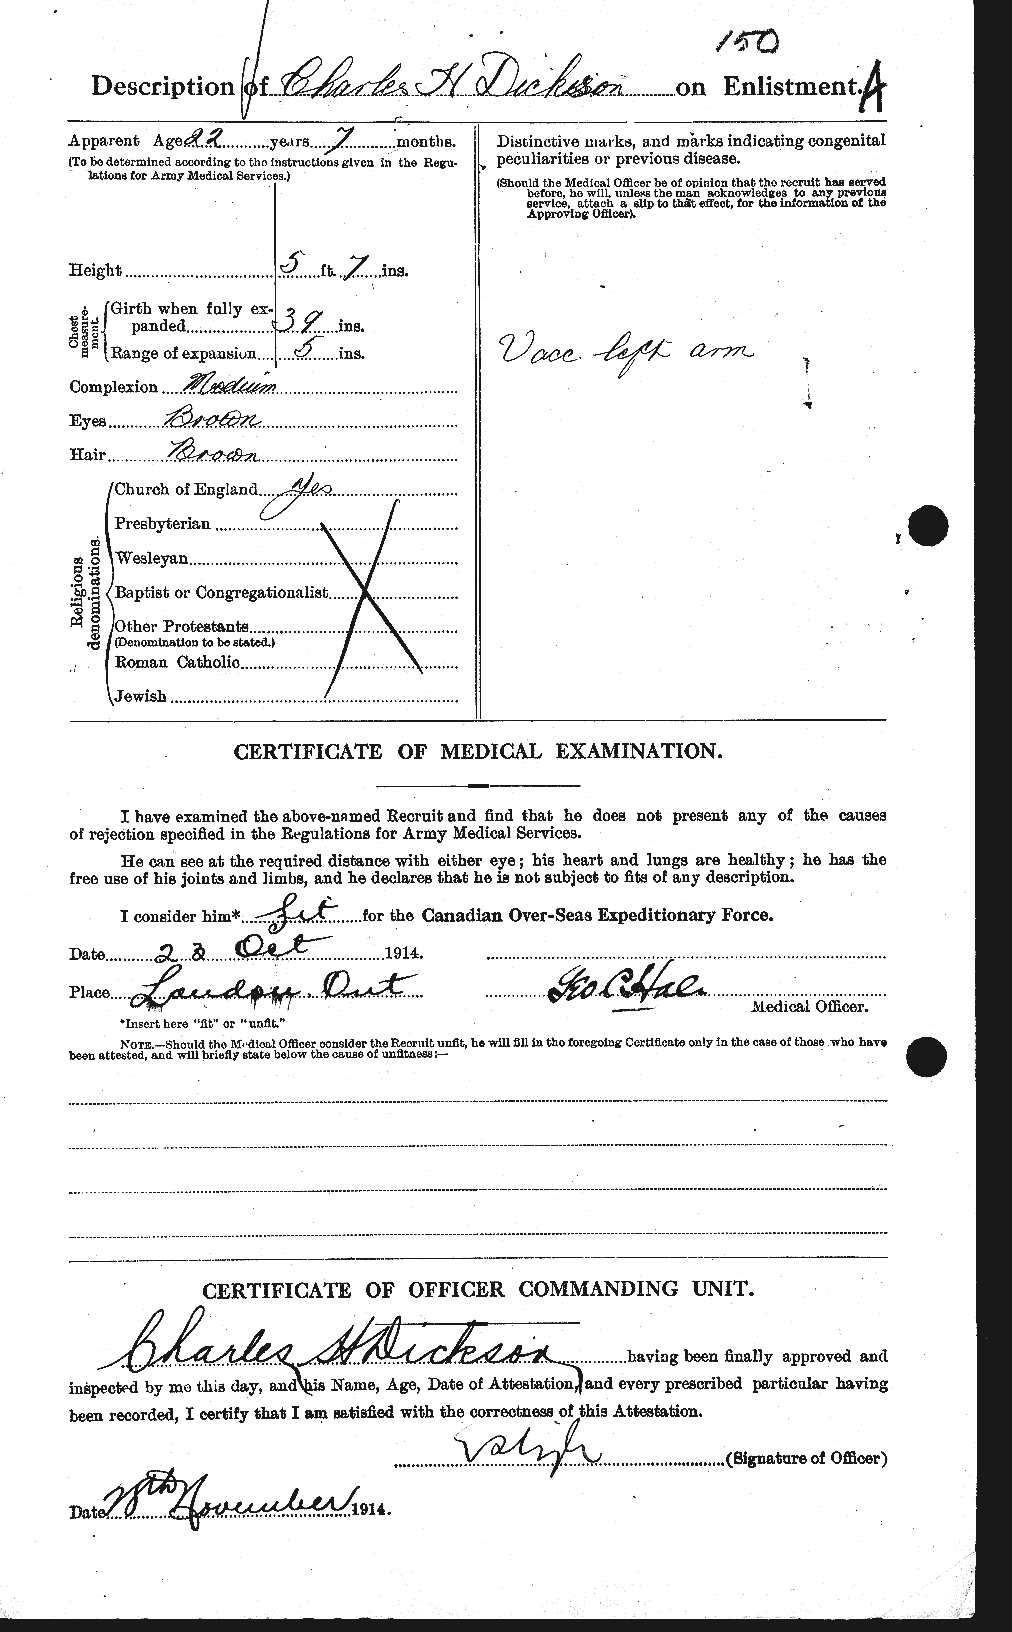 150
Description of Charles H Dickson on Enlistment. A
Apparent Age 22 years 7 months.
(To be determined according to the instructions given in the Regu-
lations for Army Medical Services.)
Height 5 ft. 7 ins.
Chest measure-ment.
Girth when fully ex-
panded 39 ins.
Range of expansion 5 ins.
Complexion Medium
Eyes Brown
Hair Brown
Religious denominations.
Church of England Yes
Presbyterian
Wesleyan
Baptist or Congregationalist
Other Protestants
(Denomination to be stated.)
Roman Catholic
Jewish
Distinctive marks, and marks indicating congenital
peculiarities or previous disease.
(Should the Medical Officer be of opinion that the recruit has served
before, he will, unless the man acknowledges to any previous
service, attach a slip to that effect, for the information of the
Approving Officer).
Vacc. left arm
CERTIFICATE OF MEDICAL EXAMINATION.
I have examined the above-named Recruit and find that he does not present any of the causes
of rejection specified in the Regulations for Army Medical Services.
He can see at the required distance with either eye; his heart and lungs are healthy; he has the
free use of his joints and limbs, and he declares that he is not subject to fits of any description.
I consider him* fit for the Canadian Over-Seas Expeditionary Force.
Date 23 Oct 1914.
Place London. Ont
Geo C Hale
Medical Officer.
*Insert here "fit" or "unfit."
NOTE.—Should the Medical Officer consider the Recruit unfit, he will fill in the foregoing Certificate only in the case of those who have
been attested, and will briefly state below the cause of unfitness:—
CERTIFICATE OF OFFICER COMMANDING UNIT.
Charles H Dickson having been finally approved and
inspected by me this day, and his Name, Age, Date of Attestation, and every prescribed particular having
been recorded, I certify that I am satisfied with the correctness of this Attestation.
(Signature of Officer)
Date 28th November 1914.